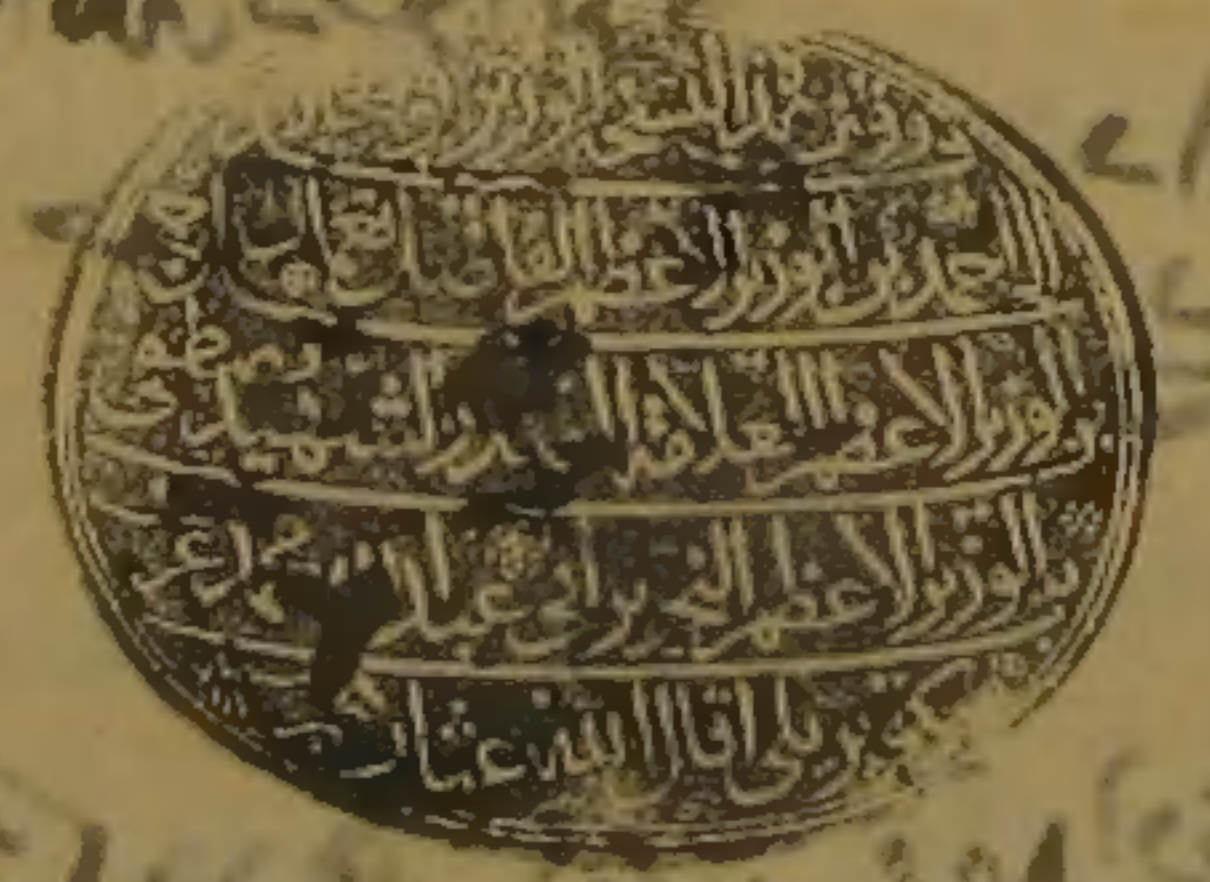 وقف هذه النسخة الوزير
احمد بن الوزير الاعظم الفاضل نعمان
بن الوزير الاعظم العلامة الصدر الشهيد مصطفى
بن الوزير الاعظم النحرير ابي عبد الله محمد عرف
بكوپريلي اقال الله عثارهم